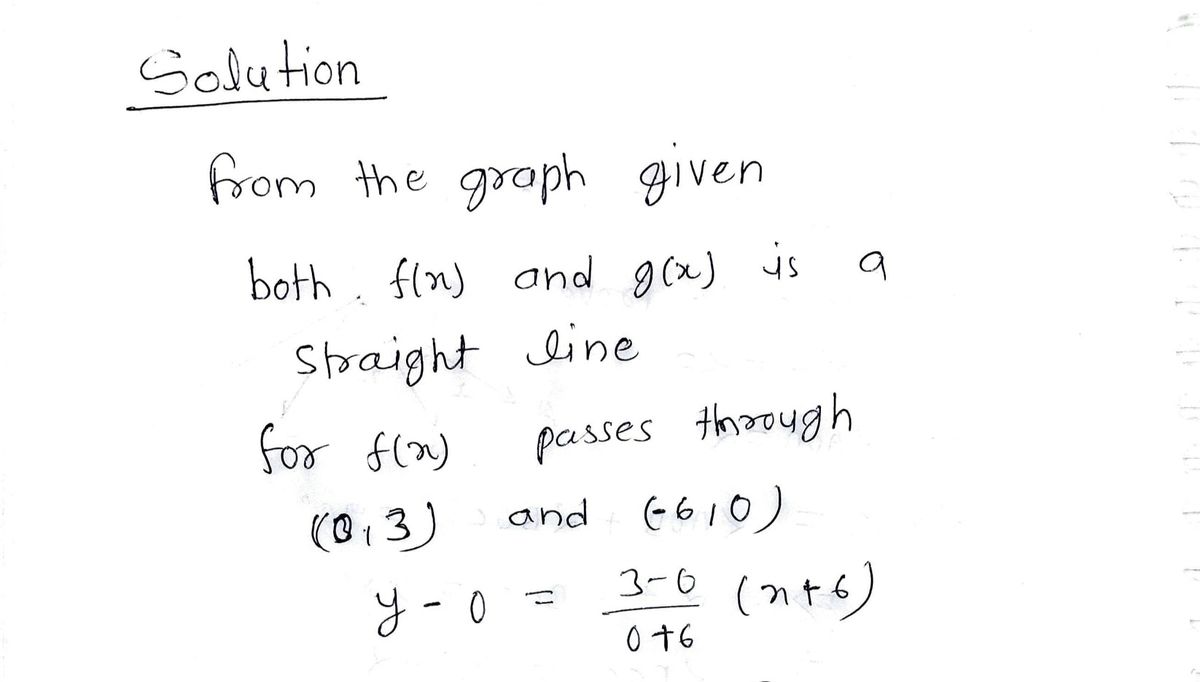 Solution
from the graph given
both f(x) and g(x) is a
straight line
for f(x) passes through
(0,3) and (-6,0)
y - 0 = 3-0/0+6 (x+6)